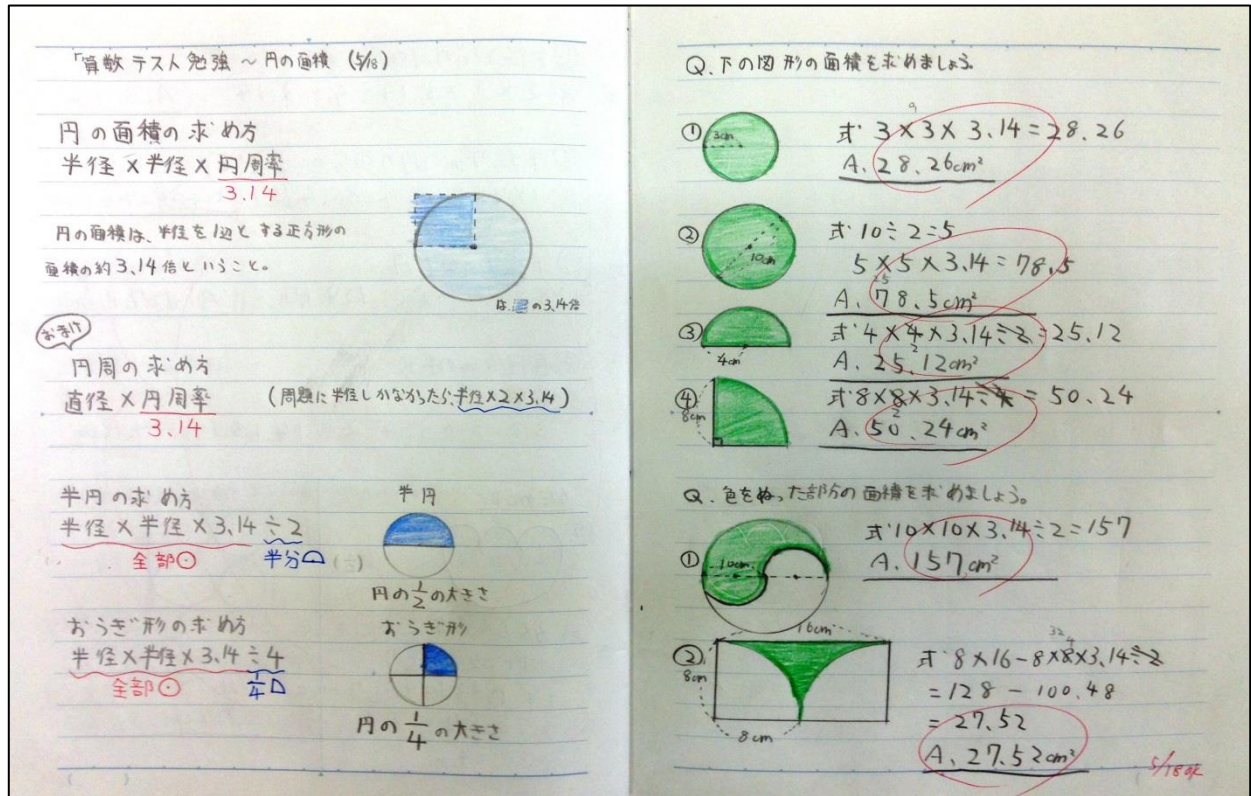 「算数テスト勉強～円の面積 (5/18)
円の面積の求め方
半径×半径×円周率
3.14
円の面積は、半径を1辺とする正方形の
面積の約3.14倍ということ。
は、の3.14倍
おまけ
円周の求め方
直径×円周率 (問題に半径しかなかったら、半径×2×3.14)
3.14
半円の求め方 半円
半径×半径×3.14÷2
全部 半分
円の1/2の大きさ
おうぎ形の求め方 おうぎ形
半径×半径×3.14÷4
全部 1/4
円の1/4の大きさ
Q.下の図形の面積を求めましょう。
① 3cm 式 3×3×3.14=28.26
9
A.28.26cm²
② 10cm 式 10÷2=5
5×5×3.14=78.5
25
A.78.5cm²
③ 4cm 式 4×4×3.14÷2=25.12
2
A.25.12cm²
④ 8cm 式 8×8×3.14÷4=50.24
2
A.50.24cm²
Q.色をぬった部分の面積を求めましょう。
① 10cm 式 10×10×3.14÷2=157
A.157cm²
16cm
② 8cm 式 8×16-8×8×3.14÷2
32 4
=128-100.48
=27.52
8cm
A.27.52cm²
5/18 ok